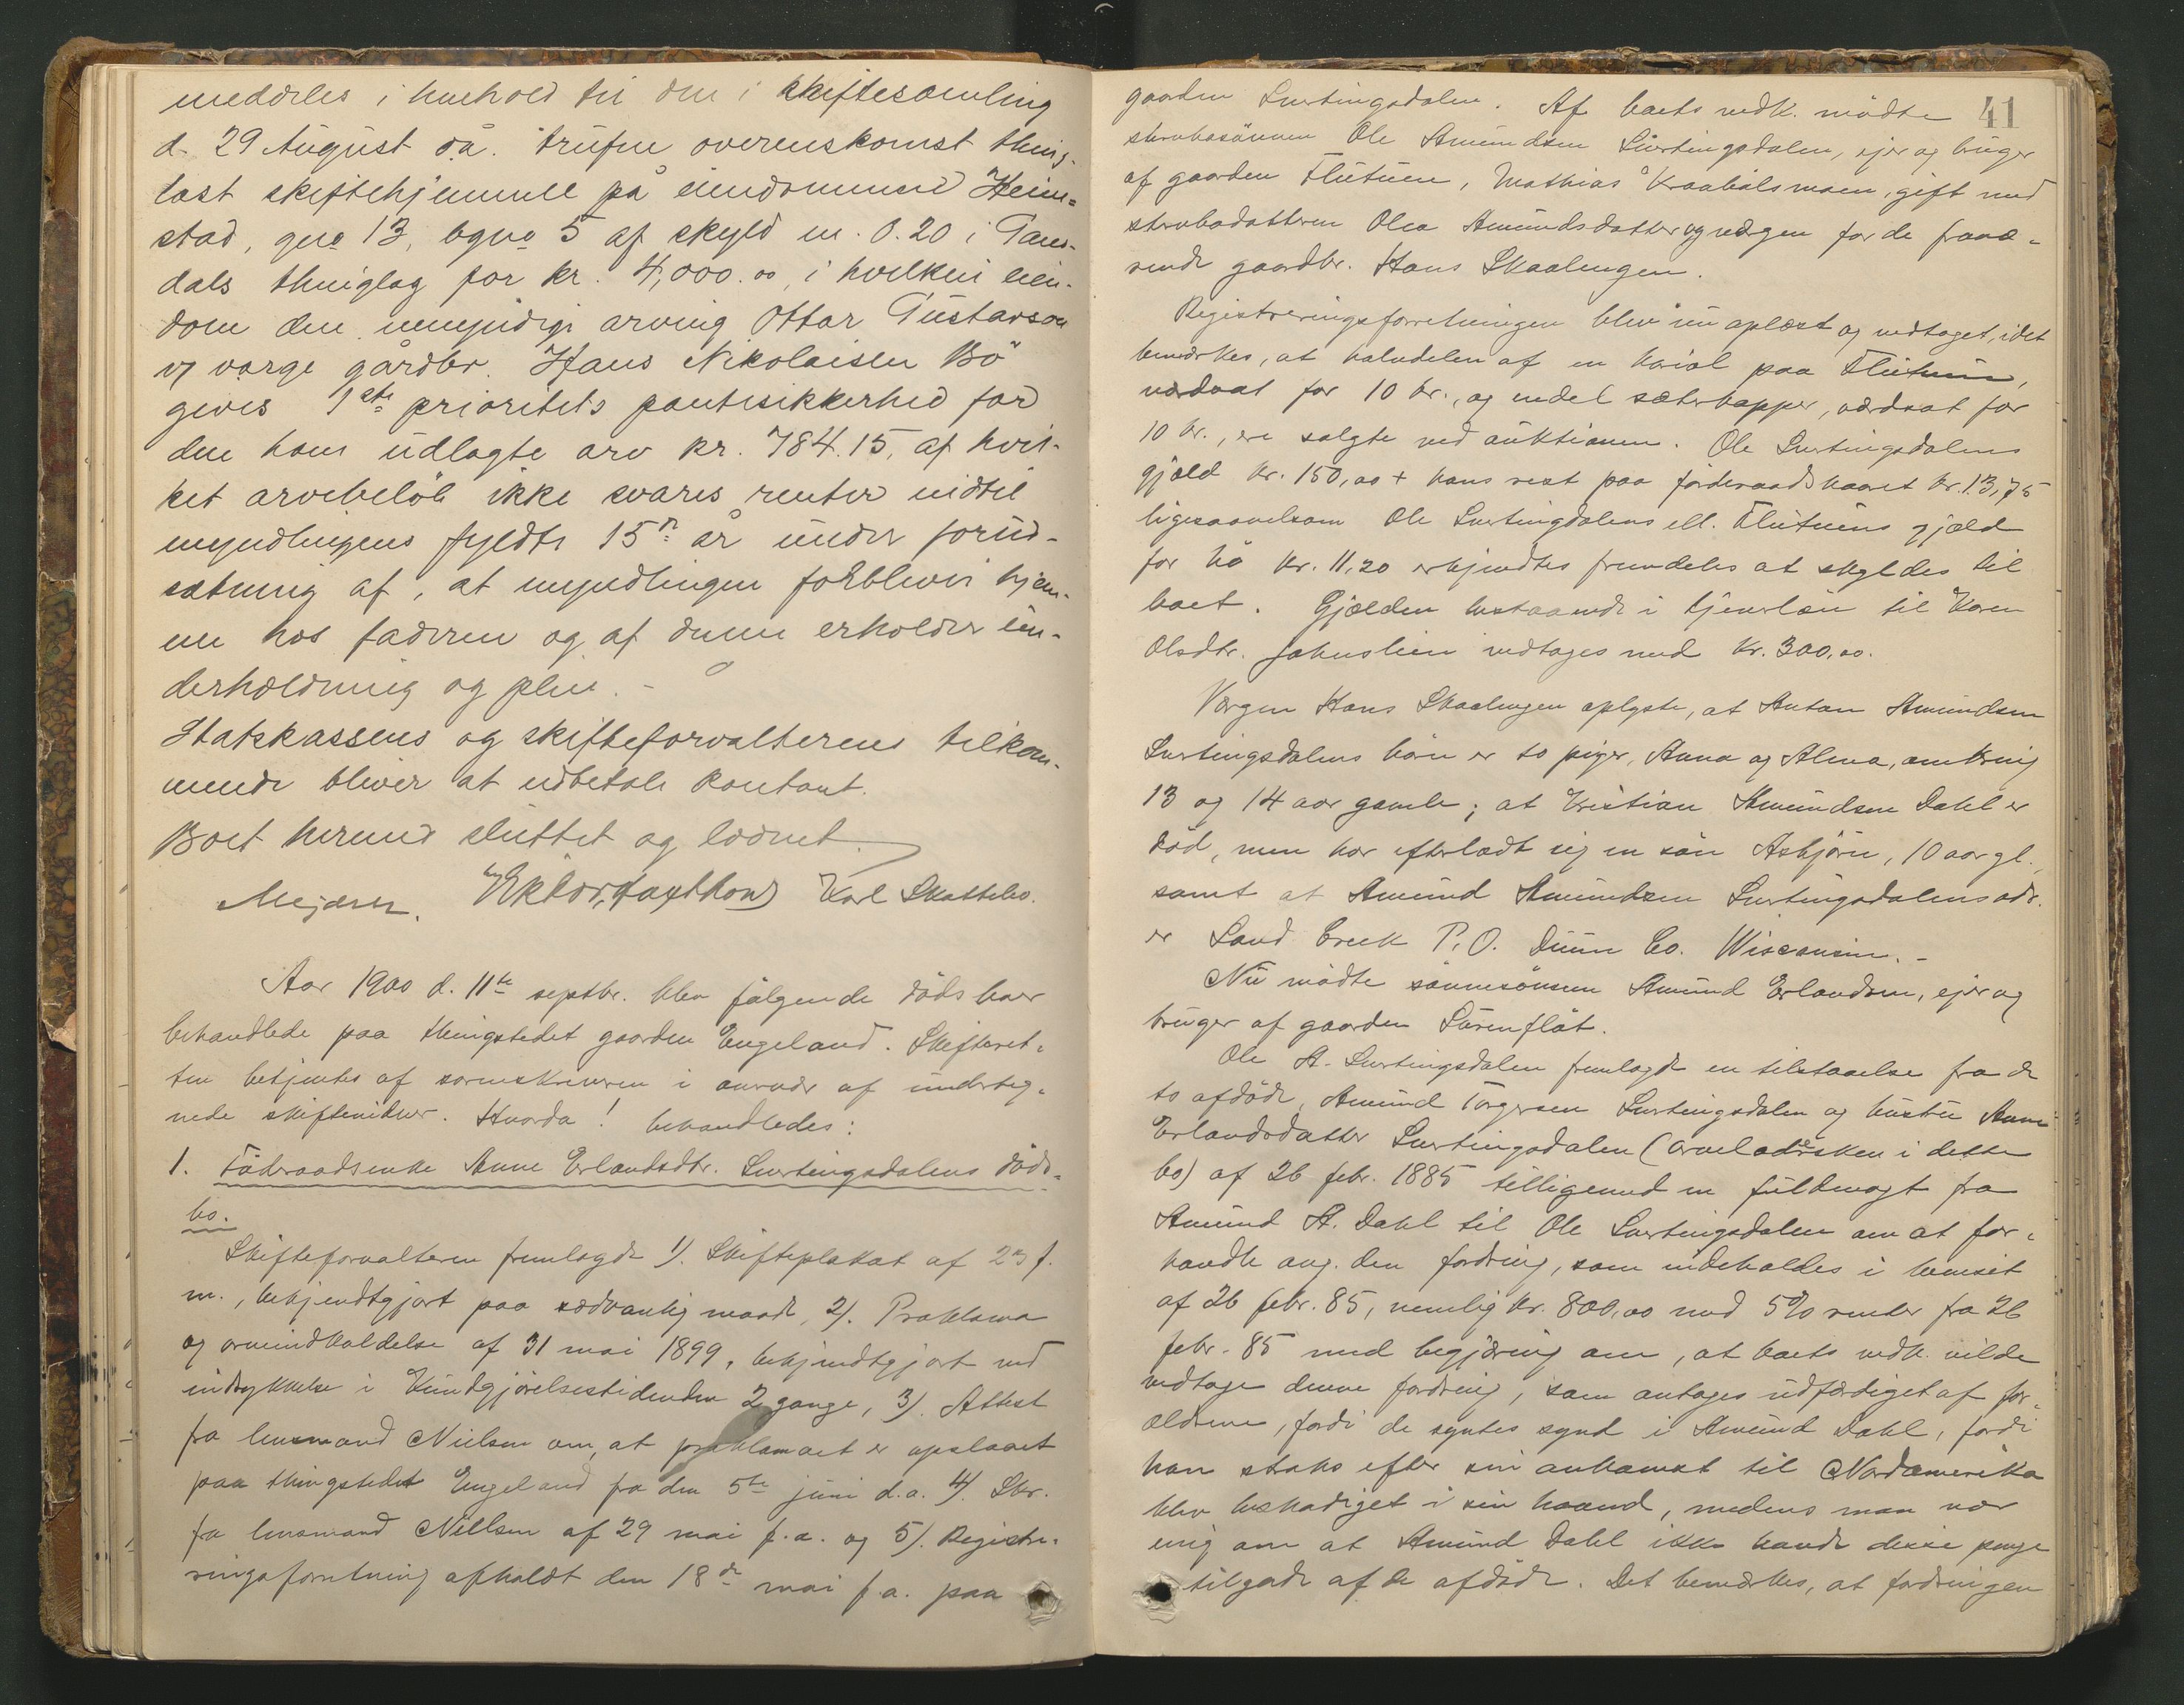 meddeles i henhold til den i skiftesamling
d. 29 August d.å. trufne overenskomst thing-
læst skiftehjemmel på eiendommen Heim=
stad, gno 13, bgno 5 af skyld m. 0.20 i
dals thinglag for kr. 4,000.00, i hvilken eien-
dom den umyndige arving Ottar Gustavson
v/ værge gårdbr. Hans Nikolaisen Bö
gives 1ste prioritets pantesikkerhed for
den ham udlagte arv kr. 784.15, af hvil-
ket arvebelöb ikke svares renter indtil
myndlingens fyldte 15n år under forud-
sætning af, at myndlingen forbliver hjem-
me hos faderen og af denne erholder un-
derholdning og pleie. -
Statskassens og skifteforvalterens tilkom-
mende bliver at udbetale kontant.
Boet hermed sluttet og loddet.
Mejdell. Karl Skattebo.
Aar 1900 d. 11te septbr. blev fölgende dödsboer
behandlede paa thingstedet gaarden Engeland. Skifteret-
ten betjentes af sorenskriveren i nærvær af underteg-
nede skiftevidner. Hvorda! behandledes:
1. Föderaadsenke Anne Erlandsdtr. Lurtingsdalens döds-
bo.
Skifteforvalteren fremlagde 1). Skifteplakat af 23 f.
m., bekjendtgjort paa sædvanlig maade, 2). Proklama
og arveindkaldelse af 31 mai 1899, bekjendtgjort ved
indrykkelse i Kundgjörelsestidenden 2 gange, 3). Attest
fra lensmand Nielsen om, at proklamaet er opslaaet
paa thingstedet Engeland fra den 5te juni d.a. 4). Skr.
fra lensmand Nielsen af 29 mai f.a. og 5). Registre-
ringsforretning afholdt den 18de mai f.a. paa
41
gaarden Lurtingsdalen. Af boets vedk. mödte
stervbosönnen Ole Amundsen Lurtingsdalen, ejer og bruger
af gaarden Flütuen, Mathias Kraabölsmoen, gift med
stervbodatteren Olea Amundsdatter og værgen for de fravæ-
rende gaardbr. Hans Skaalengen.
Registreringsforretningen blev nu oplæst og vedtaget, idet
bemærkes, at halvdelen af en kariol paa Flütuen,
værdsat for 10 kr., og endel sæterkopper, værdsat for
10 kr., ere solgte ved auktionen. Ole Lurtingsdalens
gjæld kr. 150,00 + hans rest paa föderaadskaaret kr. 13,75
ligesaavelsom Ole Lurtingdalens ell. Flütuens gjæld
for hö kr. 11,20 erkjendtes fremdeles at skyldes til
boet. Gjælden bestaaende i tjenerlön til Karen
Olsdtr. Johnslien vedtages med kr. 300,00.
Værgen Hans Skaalengen oplyste, at Anton Amundsen
Lurtingsdalens börn er to piger, Anna og Alma, omkring
13 og 14 aar gamle; at Kristian Amundsen Dahl er
död, men har efterladt sig en sön Asbjörn, 10 aar gl.
samt at Amund Amundsen Lurtingsdalens adr.
er Sand Creek P.O. Dunn Co. Wisconsin. -
Nu mödte sönnesönnen Amund Erlandsen, ejer og
bruger af gaarden Sörenflöt.
Ole A. Lurtingsdalen fremlagde en tilstaaelse fra de
to afdöde, Amund Torgersen Lurtingsdalen og hustru Anne
Erlandsdatter Lurtingsdalen (arveladersken i dette
bo) af 26 febr. 1885 tilligemed en fuldmagt fra
Amund A. Dahl til Ole Lurtingsdalen om at for-
handle ang. den fordring, som indeholdes i beviset
af 26 febr. 85, nemlig kr. 800,00 med 5% renter fra 26
febr. 85 med begjæring om, at boets vedk. vilde
vedtage denne fordring, som antages udfærdiget af for-
ældrene, fordi de syntes synd i Amund Dahl, fordi
han straks efter sin ankomst til Nordamerika
blev beskadiget i sin haand, medens man var
enig om at Amund Dahl ikke havde disse penge
tilgode af de afdöde. Det bemærkes, at fordringen